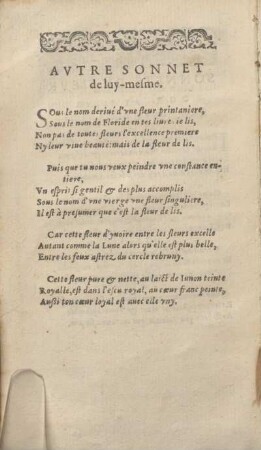 AVTRE SONNET
de luy-mesme.
SOus le nom deriué d'vne fleur printaniere,
Sous le nom de Floride en tes liures ie lis,
Non pas de toutes fleurs l'excellence premiere
Ny leur viue beauté: mais de la fleur de lis.
Puis que tu nous veux peindre vne constance en-
tiere,
Vn esprit si gentil & des plus accomplis
Sous le nom d'vne vierge vne fleur singuliere,
Il est à presumer que c'est la fleur de lis.
Car cette fleur d'yuoire entre les fleurs excelle
Autant comme la Lune alors qu'elle est plus belle,
Entre les feux astrez, du cercle rebruny.
Cette fleur pure & nette, au laict de Iunon teinte
Royalle, est dans l'escu royal, au cœur franc peinte,
Aussi ton cœur loyal est auec elle vny.